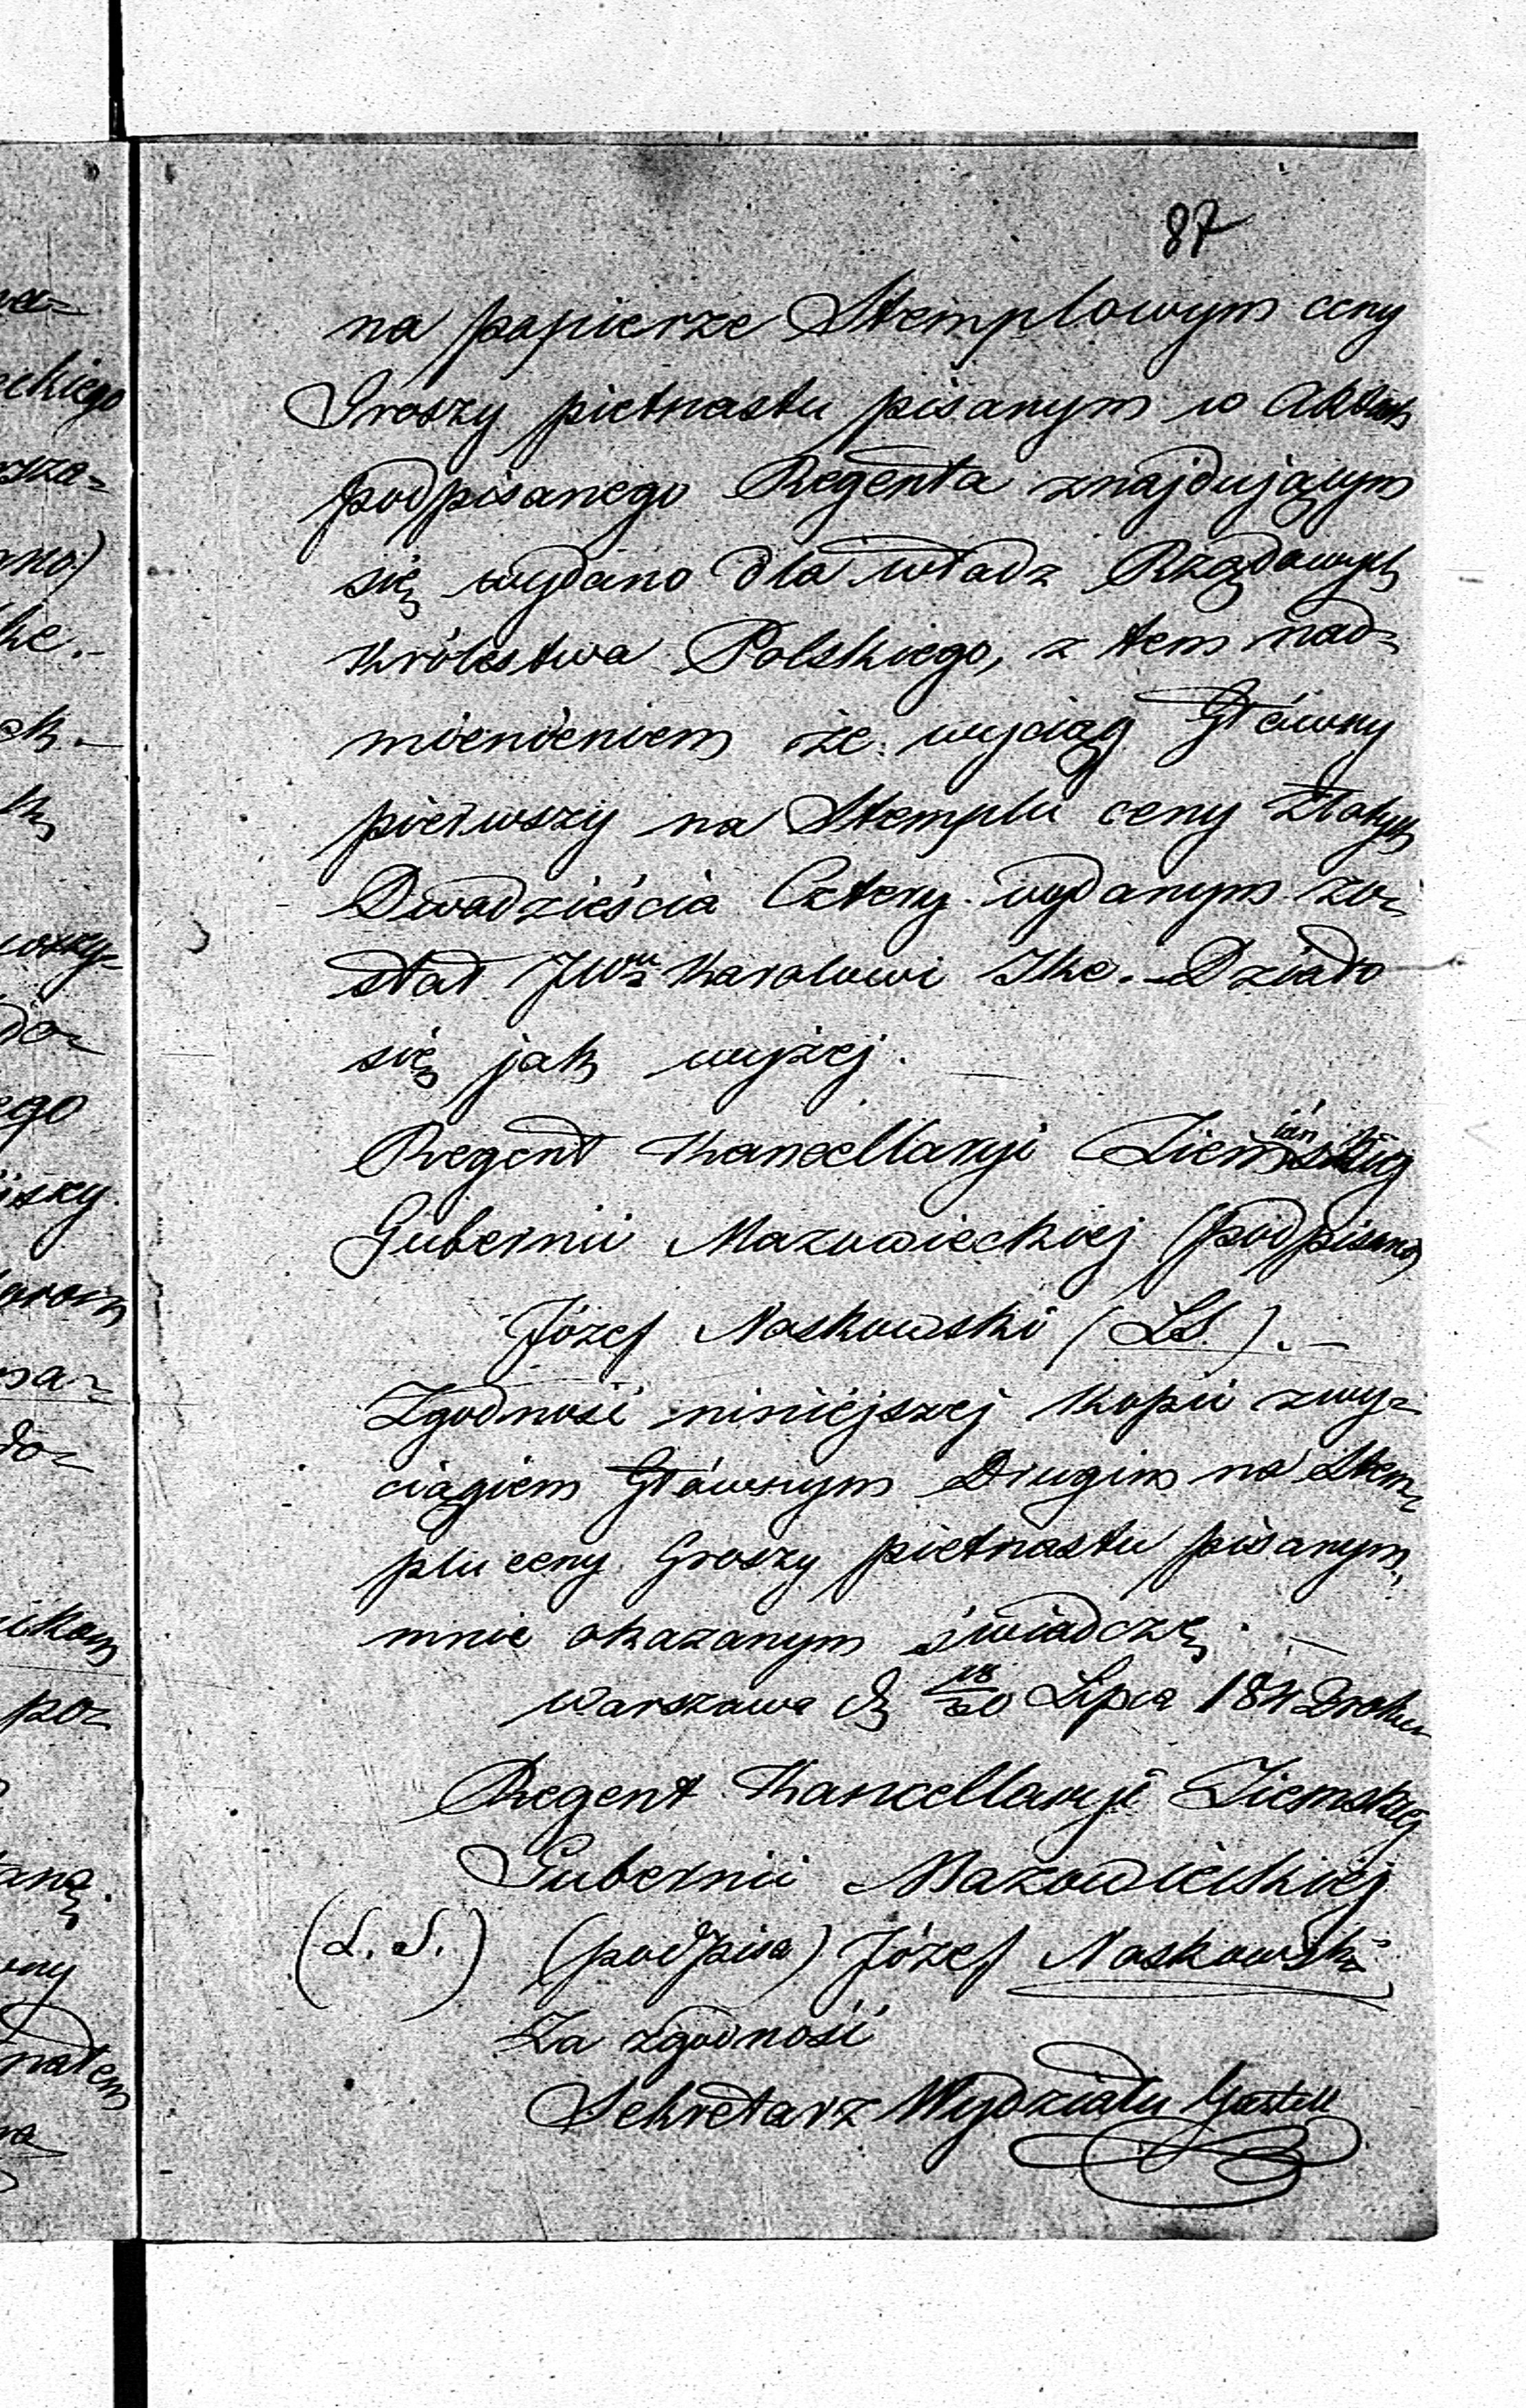 87
na papierze Stemplowym ceny
Groszy pietnastu pisanym w Aktach
podpisanego Regenta znajdującym
się wydano dla władz Rządowych
Królestwa Polskiego, z tem nad-
mienieniem że wyciąg Główny
pierwszy na Stemplu ceny Złotych
Dwadzieścia Cztery wydanym zo-
stał JWmu Karolowi Ike. - Działo
się jak wyżej.
Regent Kancellaryi
Gubernii Mazowieckiej (podpisano)
Józef Noskowski (LS). -
Zgodność niniejszej Kopii z wy-
ciągiem Głównym Drugim na Stem-
plu ceny Groszy pietnastu pisanym,
mnie okazanym świadczę. -
Warszawa d. 18/30 Lipca 1842 roku
Regent Kancellaryi Ziemskiej
Gubernii Mazowieckiej
(L. S.) (podpisa) Józef Noskowski
Za zgodność
Sekretarz Wydziału